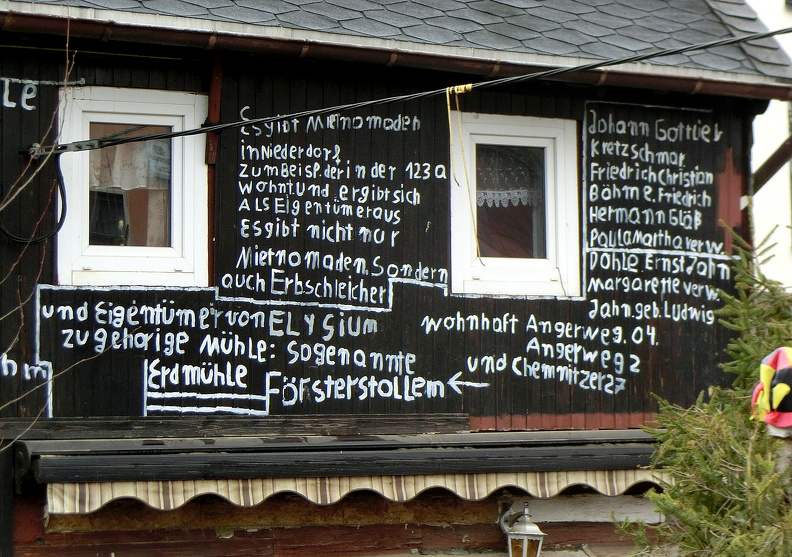 le
Es gibt Mietnomaden
in Niederdorf,
zum Beispl. der in der 123 a
wohnt. und er gibt sich
Als Eigentümer aus
Es gibt nicht nur
Mietnomaden. Sondern
auch Erbschleicher
Johann Gottlieb
Kretzschmar
Friedrich Christian
Böhme. Friedrich
Hermann Gläß
Paula Martha verw.
Dohle. Ernst John
Margarette verw.
Jahn. geb. Ludwig
und Eigentümer von ELYSIUM
zu gehörige Mühle: sogenannte
Erdmühle Försterstollem ←
wohnhaft Angerweg. 04.
Angerweg 2
und Chemnitzer 27
hm